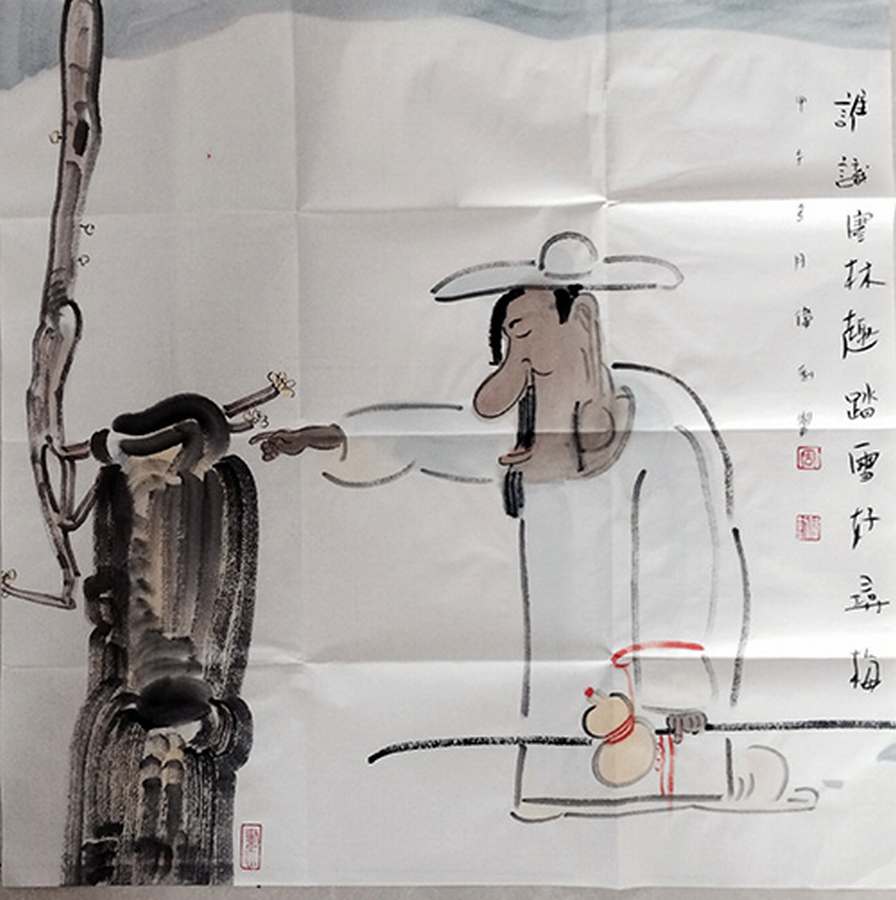 誰識寒林趣踏雪好尋梅
甲午冬月偉利